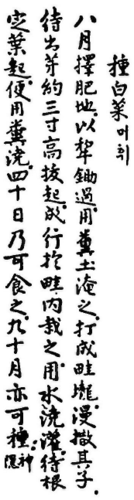 種白菜
八月擇肥地以犂鋤過用糞土淹之打成畦壠漫撒其子
待出芽約三寸高拔起成行於畦內栽之用水澆灌待根
定葉起便用糞澆四十日乃可食之九十月亦可種神隱